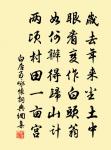 歲去年來塵土中
眼看變作白頭翁
如何辦得歸山計
兩頃村田一畝宮
白居易詠懷詞典網集